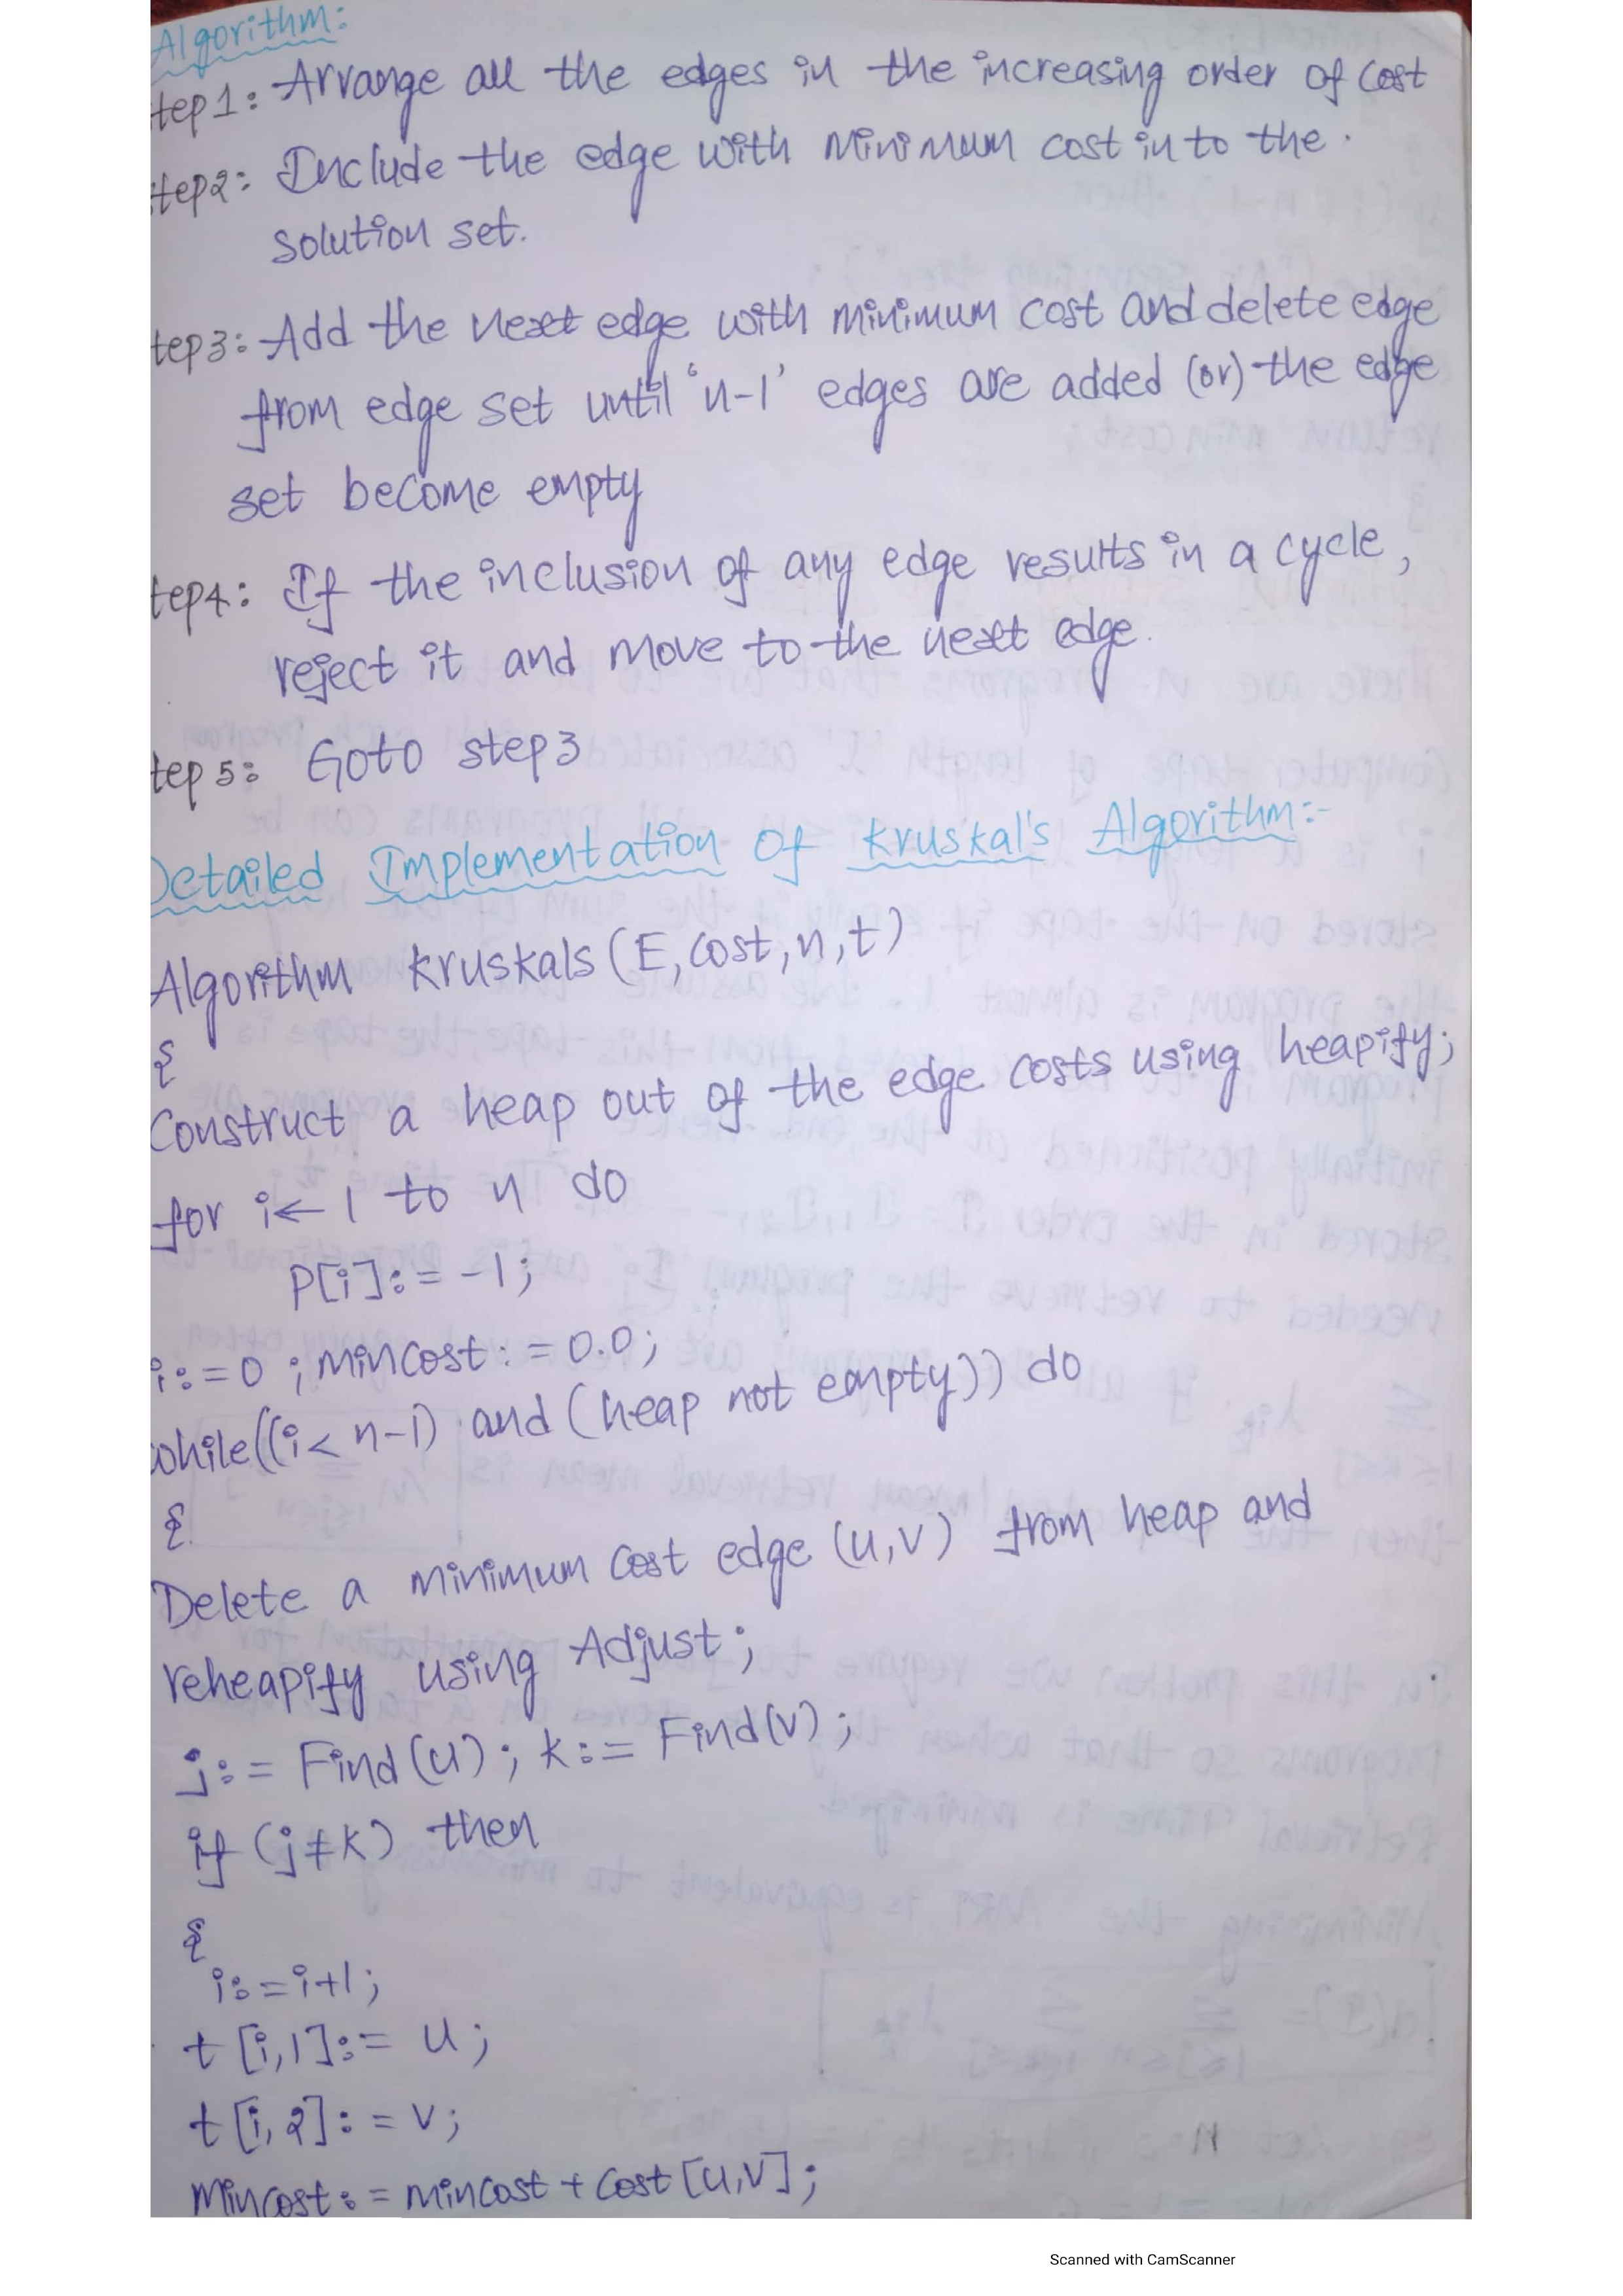 Algorithm:
tep1: Arrange all the edges in the increasing order of cost
step2: Include the edge with minimum cost in to the.
solution set.
tep3: Add the next edge with minimum cost and delete edge
from edge set until 'n-1' edges are added (or) the edge
set become empty
tep4: If the inclusion of any edge results in a cycle,
reject it and move to the next edge.
tep5: Goto step3
Detailed Implementation Of Kruskal's Algorithm:-
Algorithm kruskals(E,cost,n,t)
{
Construct a heap out of the edge costs using heapify;
for i← 1 to n do
P[i]:= -1;
i:=0 ; mincost:= 0.0;
while((i< n-1) and (heap not empty)) do
{
Delete a minimum cost edge (u,v) from heap and
reheapify using Adjust;
j:= Find(u); k:= Find(v);
if (j≠k) then
{
i:=i+1;
t[i,1]:= u;
t[i,2]:= v;
mincost:= mincost + cost[u,v];
Scanned with CamScanner